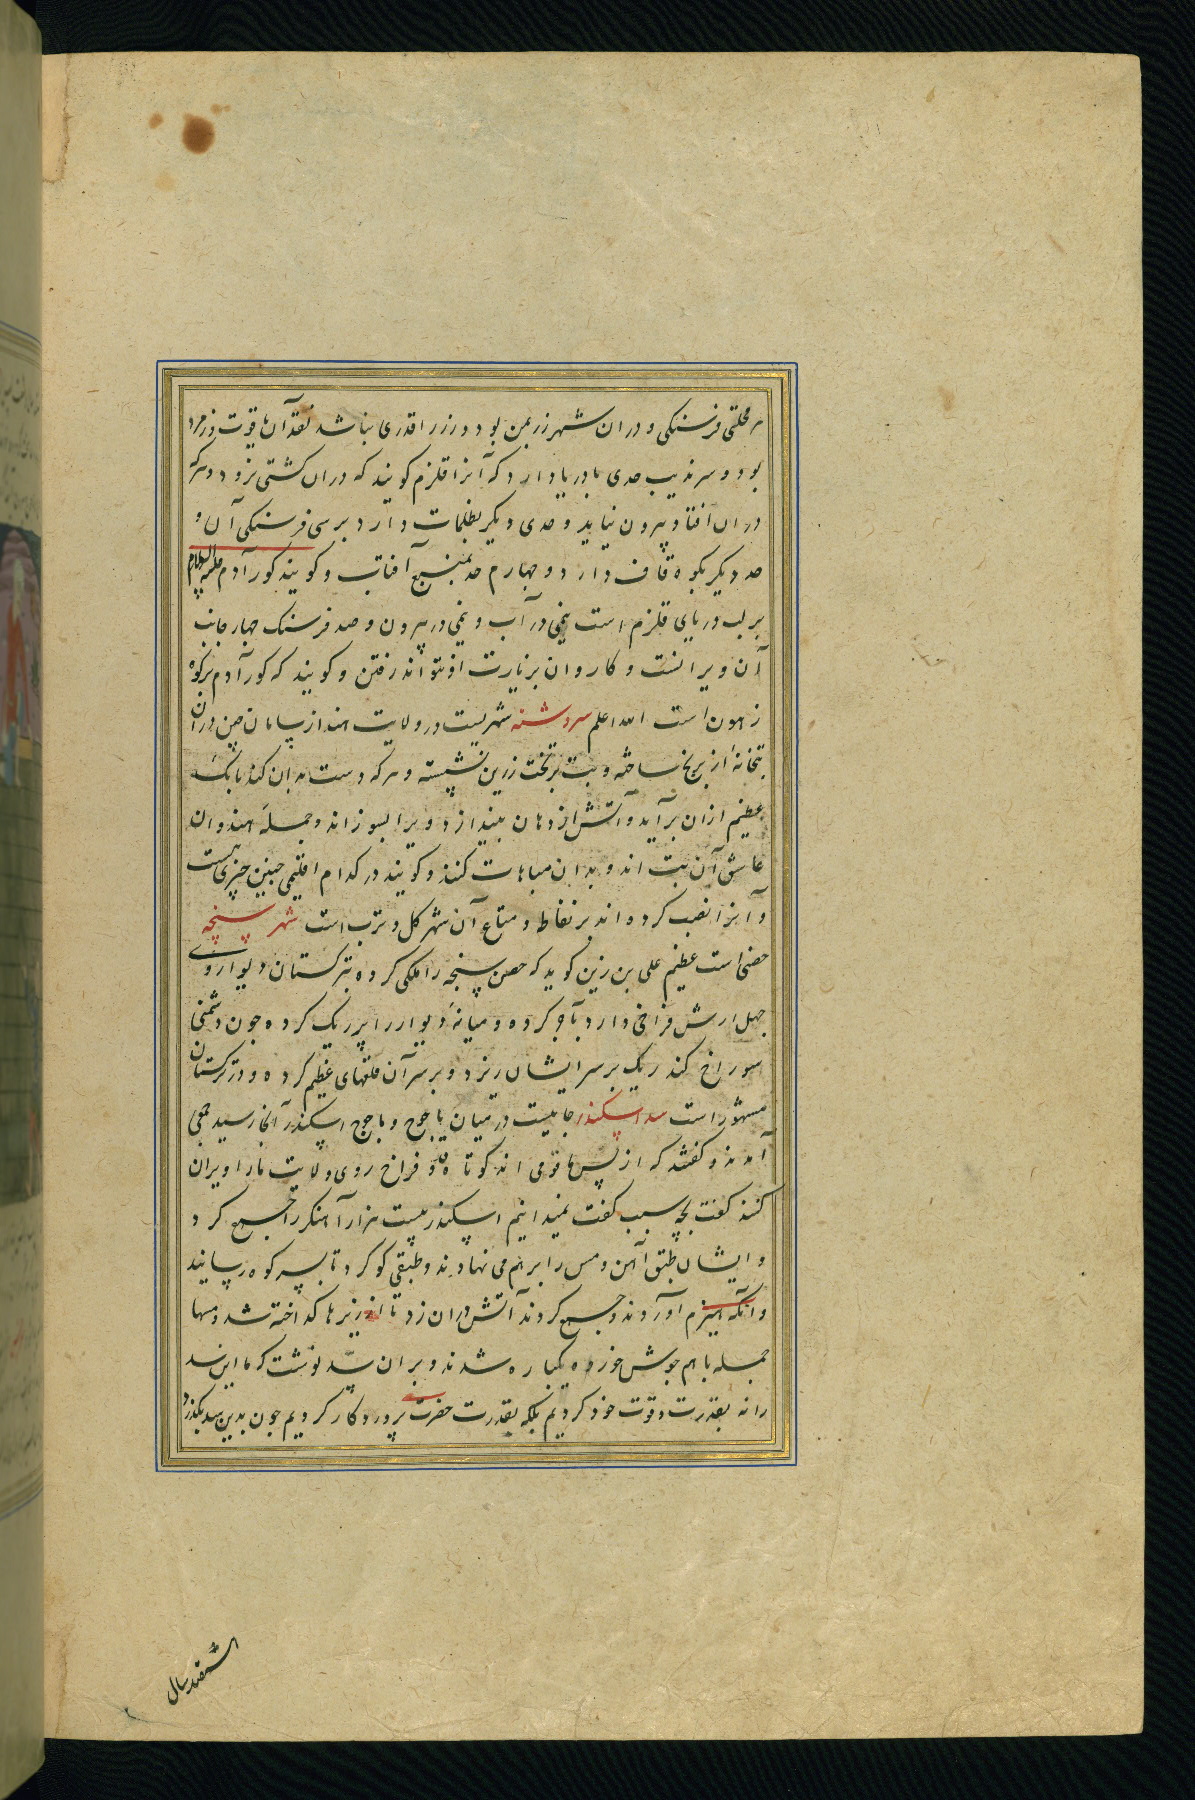 هر محلتی فرسنکی و دران شهر زر بمن بود و زر را قدری نباشد نقد آن یاقوت و زمرد
بود و سرندیب حدی با دریا دارد که آنرا قلزم کویند که دران کشتی نرود و هرکه
دران افتاد بیرون نیاید و حدی دیکر بظلمات دارد بر سی فرسنکی آن و
حد دیکر بکوه قاف دارد و چهارم حد بمنبع آفتاب و کویند کور آدم علیه السلام
بر لب دریای قلزم است نیمی در آب و نیمی در بیرون و صد فرسنک چهار جانب
آن ویرانست و کاروان بزیارت او نتواند رفتن و کویند که کور آدم بر کوه
زهون است الله اعلم سردشنه شهریست در ولایت هند از بیابان چین دران
بتخانهٔ از برنج ساخته و بت بر تخت زرین نشسته و هرکه دست بدان کند بانک
عظیم ازان برآید و آتش از دهان بیندازد و ویرا بسوزاند و جملهٔ هندوان
عاشق آن بت اند و بدان مباهات کنند و کویند در کدام اقلیمی چنین چیزی نیست
و آنرا نصب کرده اند بر نفاط و متاع آن شهر کل و ترب است شهر سپنجه
حصنی است عظیم علی بن زین کوید که حصن سپنجه را ملکی کرده بترکستان دیوار وی
چهل ارش فراخی دارد بآجر کرده و میانهٔ دیوار را پر ریک کرده چون دشمنی
سوراخ کند ریک بر سر ایشان ریزد و بر سر آن قلعهای عظیم کرده و در ترکستان
مشهور است سد اسکندر جاییست در میان یاجوج و ماجوج اسکندر آنجا رسید جمعی
آمدند و کفتند که از پس ما قومی اند کوتاه و فراخ روی ولایت ما را ویران
کنند کفت بچه سبب کفت نمیدانیم اسکندر بیست هزار آهنکر را جمع کرد
و ایشان طبق آهن و مس را بر هم می نهادند و طبقی کوکرد تا بسر کوه رسانیند
وانکه هیزم اوردند و جمع کردند آتش دران زد تا از زیرها کداخته شد و مسها
جمله با هم جوش خورده یکباره شدند و بران سد نوشت که ما این سد
را نه بقدرت و قوت خود کردیم بلکه بقدرت حضرت پروردکار کردیم چون بدین سد بکذرد
سال